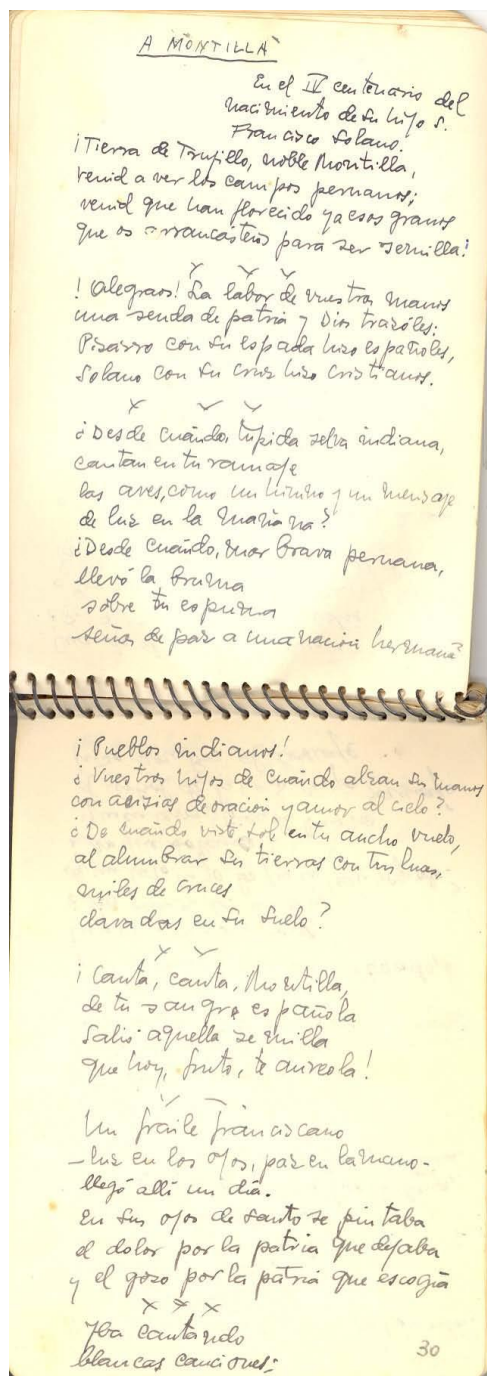 A MONTILLA
En el IV centenario del
nacimiento de su hijo S.
Francisco Solano.
¡Tierra de Trujillo, noble Montilla,
venid a ver los campos peruanos;
venid que han florecido ya esos granos
que os arrancásteis para ser semilla!
! Alegraos! La labor de vuestras manos
una senda de patria y Dios trazóles:
Pizarro con su espada hizo españoles,
Solano con su cruz hizo cristianos.
¿Desde cuándo, tupida selva indiana,
cantan en tu ramaje
las aves, como un himno y un mensaje
de luz en la mañana?
¿Desde cuándo, mar brava peruana,
llevó la bruma
sobre tu espuma
señas de paz a una nación hermana?
¡Pueblos indianos!
¿Vuestros hijos de cuándo alzan sus manos
con ansias de oración y amor al cielo?
¿De cuándo visto, sol, en tu ancho vuelo,
al alumbrar sus tierras con tus luces,
miles de cruces
clavadas en su suelo?
¡Canta, canta, Montilla,
de tu sangre española
salió aquella semilla
que hoy, fruto, te aureola!
Un fraile franciscano
—luz en los ojos, paz en la mano-
llegó allí un día.
En sus ojos de santo se pintaba
el dolor por la patria que dejaba
y el gozo por la patria que escogía
x x x
Iba cantando
blancas canciones:
30